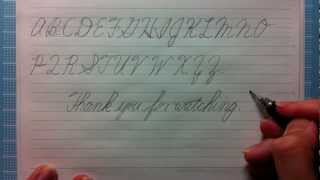 A B C D E F G H I J K L M N O
P Q R S T U V W X Y Z
Thank you for watching.